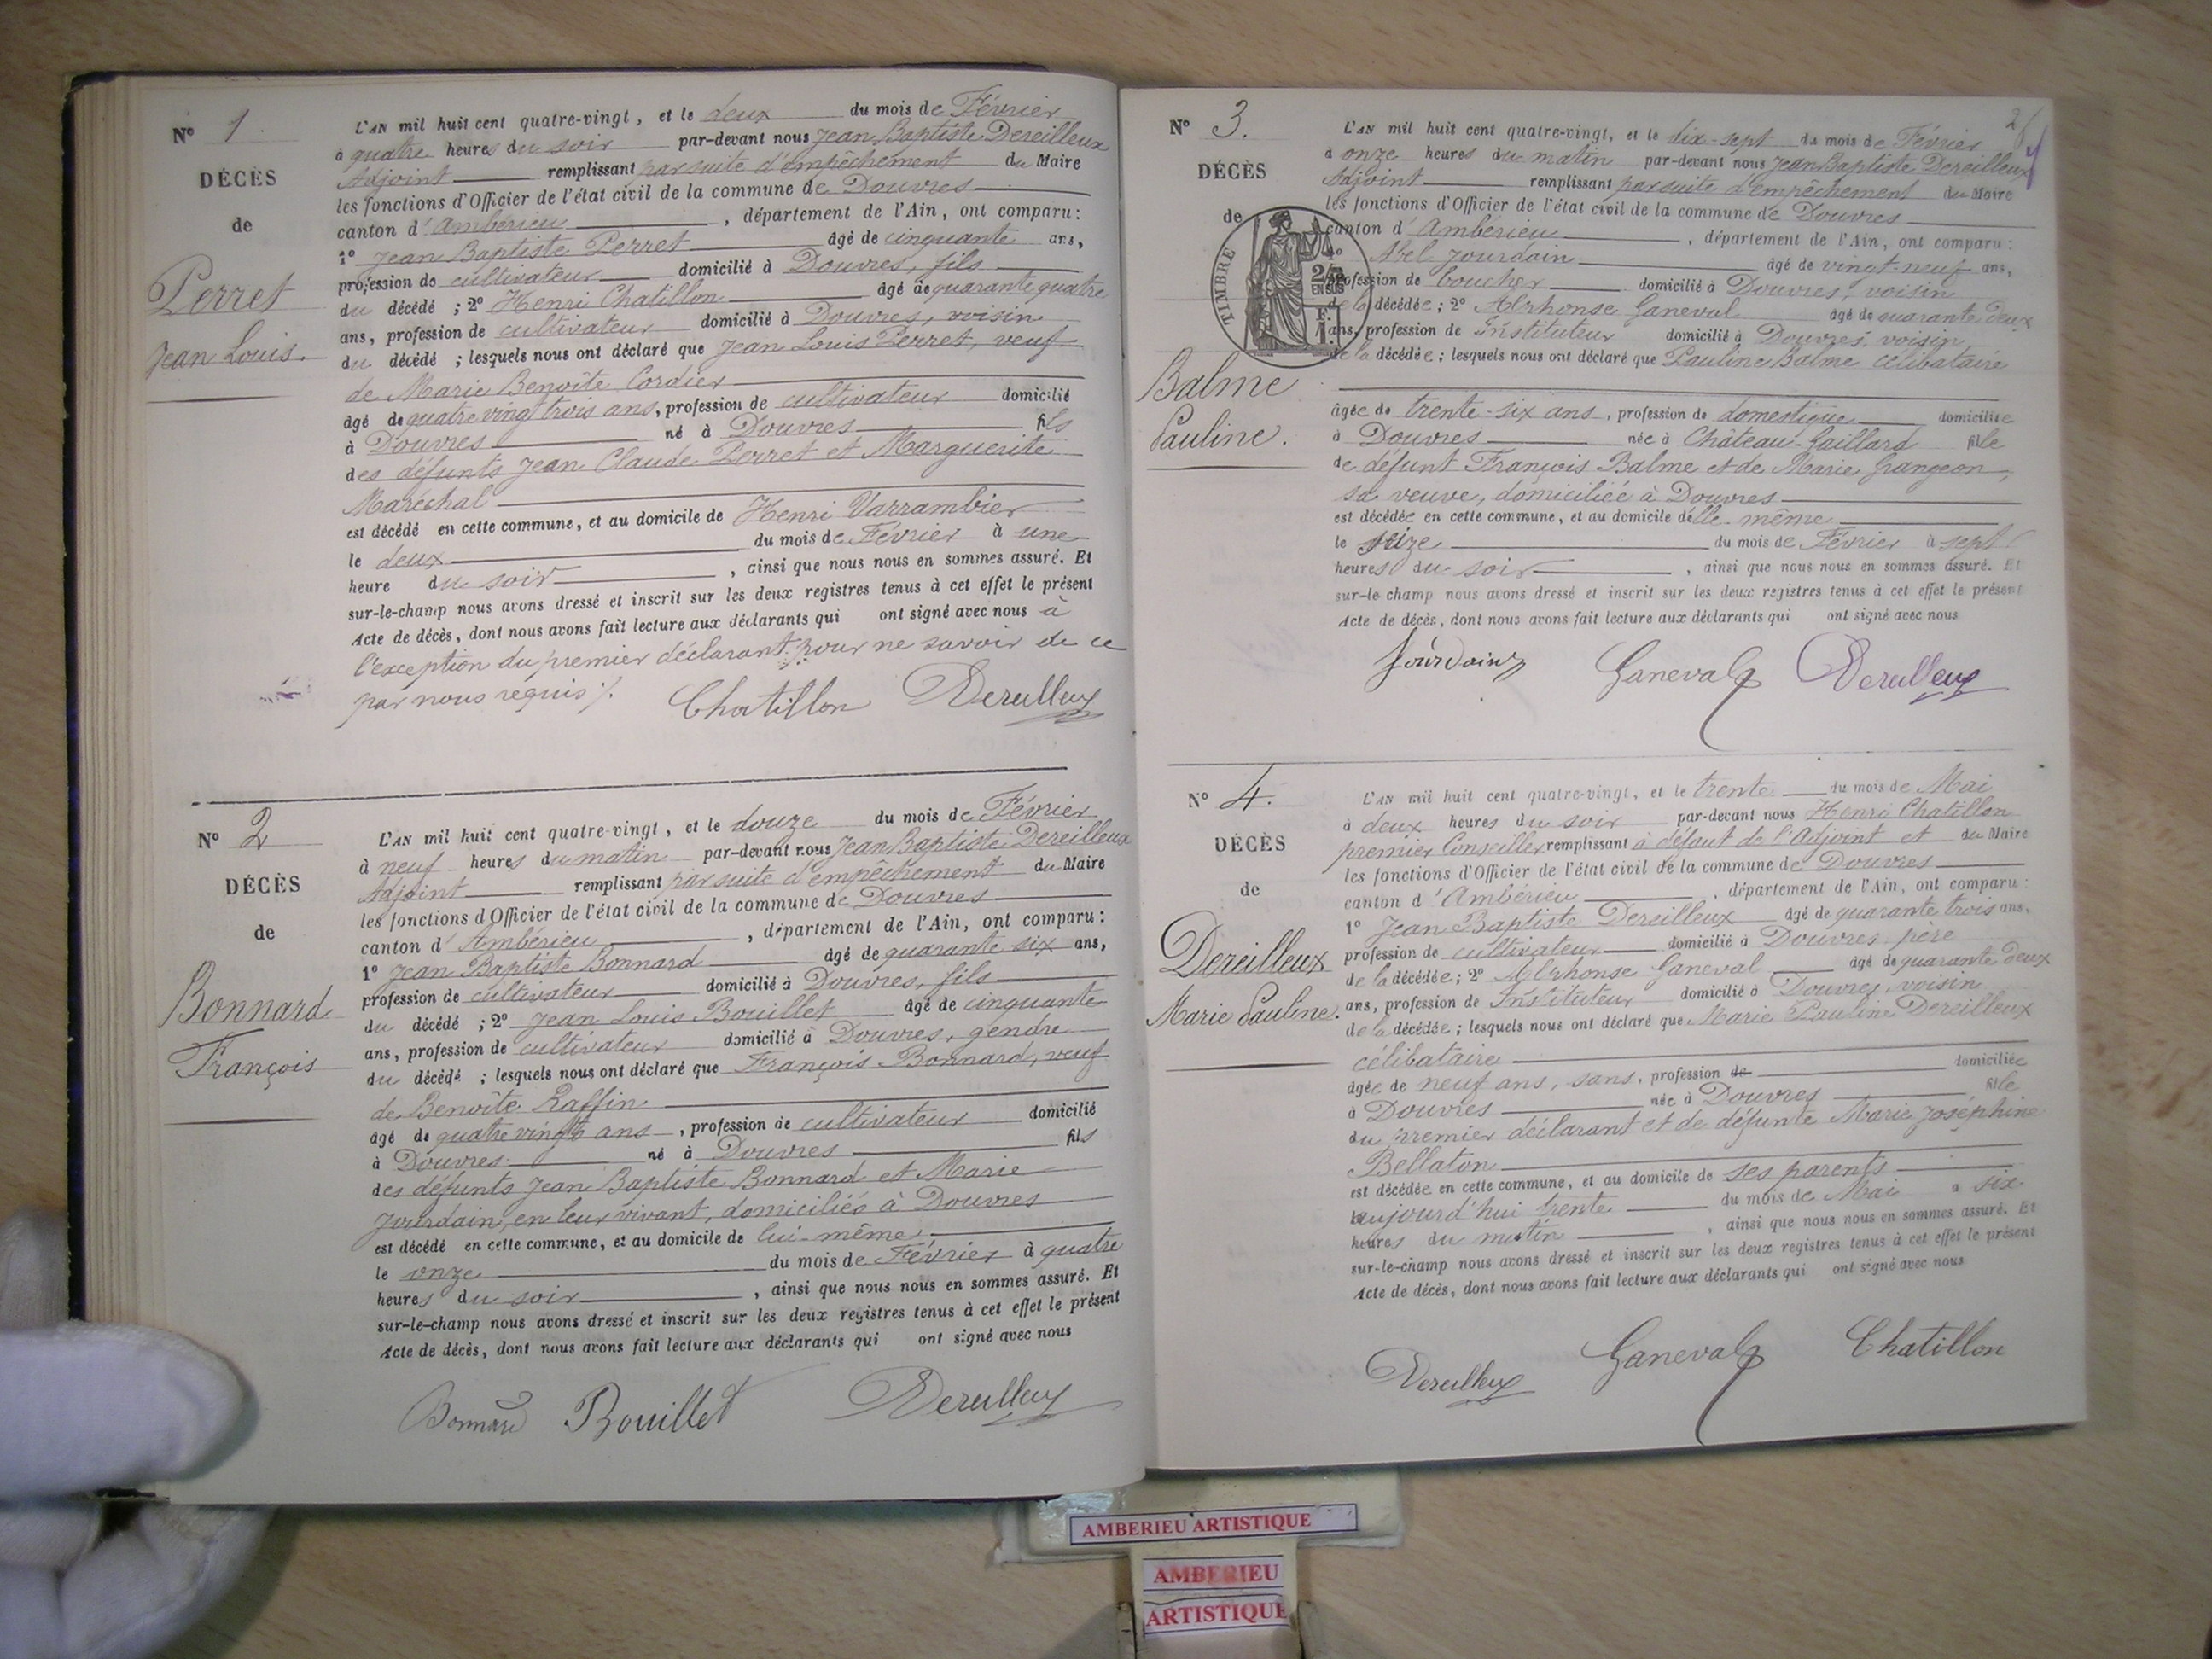 N° 1
DÉCÈS
de
Perret
Jean Louis.
L'AN mil huit cent quatre-vingt, et le deux du mois de Février
à quatre heures du soir par-devant nous Jean Baptiste Dereilleux
Adjoint remplissant par suite d'empêchement du Maire
les fonctions d'Officier de l'état civil de la commune de Douvres
canton d'Ambérieu, département de l'Ain, ont comparu:
1° Jean Baptiste Perret âgé de cinquante ans,
profession de cultivateur domicilié à Douvres, fils
du décédé ; 2° Henri Chatillon âgé de quarante quatre
ans, profession de cultivateur domicilié à Douvres, voisin
du décédé ; lesquels nous ont déclaré que Jean Louis Perret, veuf
de Marie Benoîte Cordier
âgé de quatre vingt trois ans, profession de cultivateur domicilié
à Douvres né à Douvres fils
des défunts Jean Claude Perret et Marguerite
Maréchal
est décédé en cette commune, et au domicile de Henri Varrambier
le deux du mois de Février à une
heure du soir, ainsi que nous nous en sommes assuré. Et
sur-le-champ nous avons dressé et inscrit sur les deux registres tenus à cet effet le présent
Acte de décès, dont nous avons fait lecture aux déclarants qui ont signé avec nous à
l'exception du premier déclarant pour ne savoir de ce
par nous requis ./.
Chatillon Dereilleux
N° 2
DÉCÈS
de
Bonnard
François
L'AN mil huit cent quatre-vingt, et le douze du mois de Février
à neuf heures du matin par-devant nous Jean Baptiste Dereilleux
Adjoint remplissant par suite d'empêchement du Maire
les fonctions d'Officier de l'état civil de la commune de Douvres
canton d'Ambérieu, département de l'Ain, ont comparu:
1° Jean Baptiste Bonnard âgé de quarante six ans,
profession de cultivateur domicilié à Douvres, fils
du décédé ; 2° Jean Louis Bouillet âgé de cinquante
ans, profession de cultivateur domicilié à Douvres, gendre
du décédé ; lesquels nous ont déclaré que François Bonnard, veuf
de Benoîte Raffin
âgé de quatre vingts ans, profession de cultivateur domicilié
à Douvres né à Douvres fils
des défunts Jean Baptiste Bonnard et Marie
Jourdain, en leur vivant, domiciliés à Douvres
est décédé en cette commune, et au domicile de lui-même
le onze du mois de Février à quatre
heures du soir, ainsi que nous nous en sommes assuré. Et
sur-le-champ nous avons dressé et inscrit sur les deux registres tenus à cet effet le présent
Acte de décès, dont nous avons fait lecture aux déclarants qui ont signé avec nous
Bonnard Bouillet Dereilleux
N° 3.
DÉCÈS
de
TIMBRE
2/10
EN SUS
Balme
Pauline.
L'AN mil huit cent quatre-vingt, et le dix-sept du mois de Février
à onze heures du matin par-devant nous Jean Baptiste Dereilleux
Adjoint remplissant par suite d'empêchement du Maire
les fonctions d'Officier de l'état civil de la commune de Douvres
canton d'Ambérieu, département de l'Ain, ont comparu:
1° Abel Jourdain âgé de vingt-neuf ans,
profession de boucher domicilié à Douvres, voisin
de la décédée ; 2° Alphonse Ganeval âgé de quarante deux
ans, profession de Instituteur domicilié à Douvres, voisin
de la décédée ; lesquels nous ont déclaré que Pauline Balme célibataire
âgée de trente-six ans, profession de domestique domiciliée
à Douvres née à Château-Gaillard fille
de défunt François Balme et de Marie Grangeon,
sa veuve, domiciliée à Douvres
est décédée en cette commune, et au domicile d'elle-même
le seize du mois de Février à sept
heures du soir, ainsi que nous nous en sommes assuré. Et
sur-le-champ nous avons dressé et inscrit sur les deux registres tenus à cet effet le présent
Acte de décès, dont nous avons fait lecture aux déclarants qui ont signé avec nous
Jourdain Ganeval Dereilleux
N° 4.
DÉCÈS
de
Dereilleux
Marie Pauline.
L'AN mil huit cent quatre-vingt, et le trente du mois de Mai
à deux heures du soir par-devant nous Henri Chatillon
premier Conseiller remplissant à défaut de l'Adjoint et du Maire
les fonctions d'Officier de l'état civil de la commune de Douvres
canton d'Ambérieu, département de l'Ain, ont comparu:
1° Jean Baptiste Dereilleux âgé de quarante trois ans,
profession de cultivateur domicilié à Douvres père
de la décédée ; 2° Alphonse Ganeval âgé de quarante deux
ans, profession de Instituteur domicilié à Douvres, voisin
de la décédée ; lesquels nous ont déclaré que Marie Pauline Dereilleux
célibataire
âgée de neuf ans, sans, profession de domiciliée
à Douvres née à Douvres fille
du premier déclarant et de défunte Marie Joséphine
Bellaton
est décédée en cette commune, et au domicile de ses parents
aujourd'hui trente du mois de Mai à six
heures du matin, ainsi que nous nous en sommes assuré. Et
sur-le-champ nous avons dressé et inscrit sur les deux registres tenus à cet effet le présent
Acte de décès, dont nous avons fait lecture aux déclarants qui ont signé avec nous
Dereilleux Ganeval Chatillon
AMBERIEU ARTISTIQUE
AMBERIEU
ARTISTIQUE